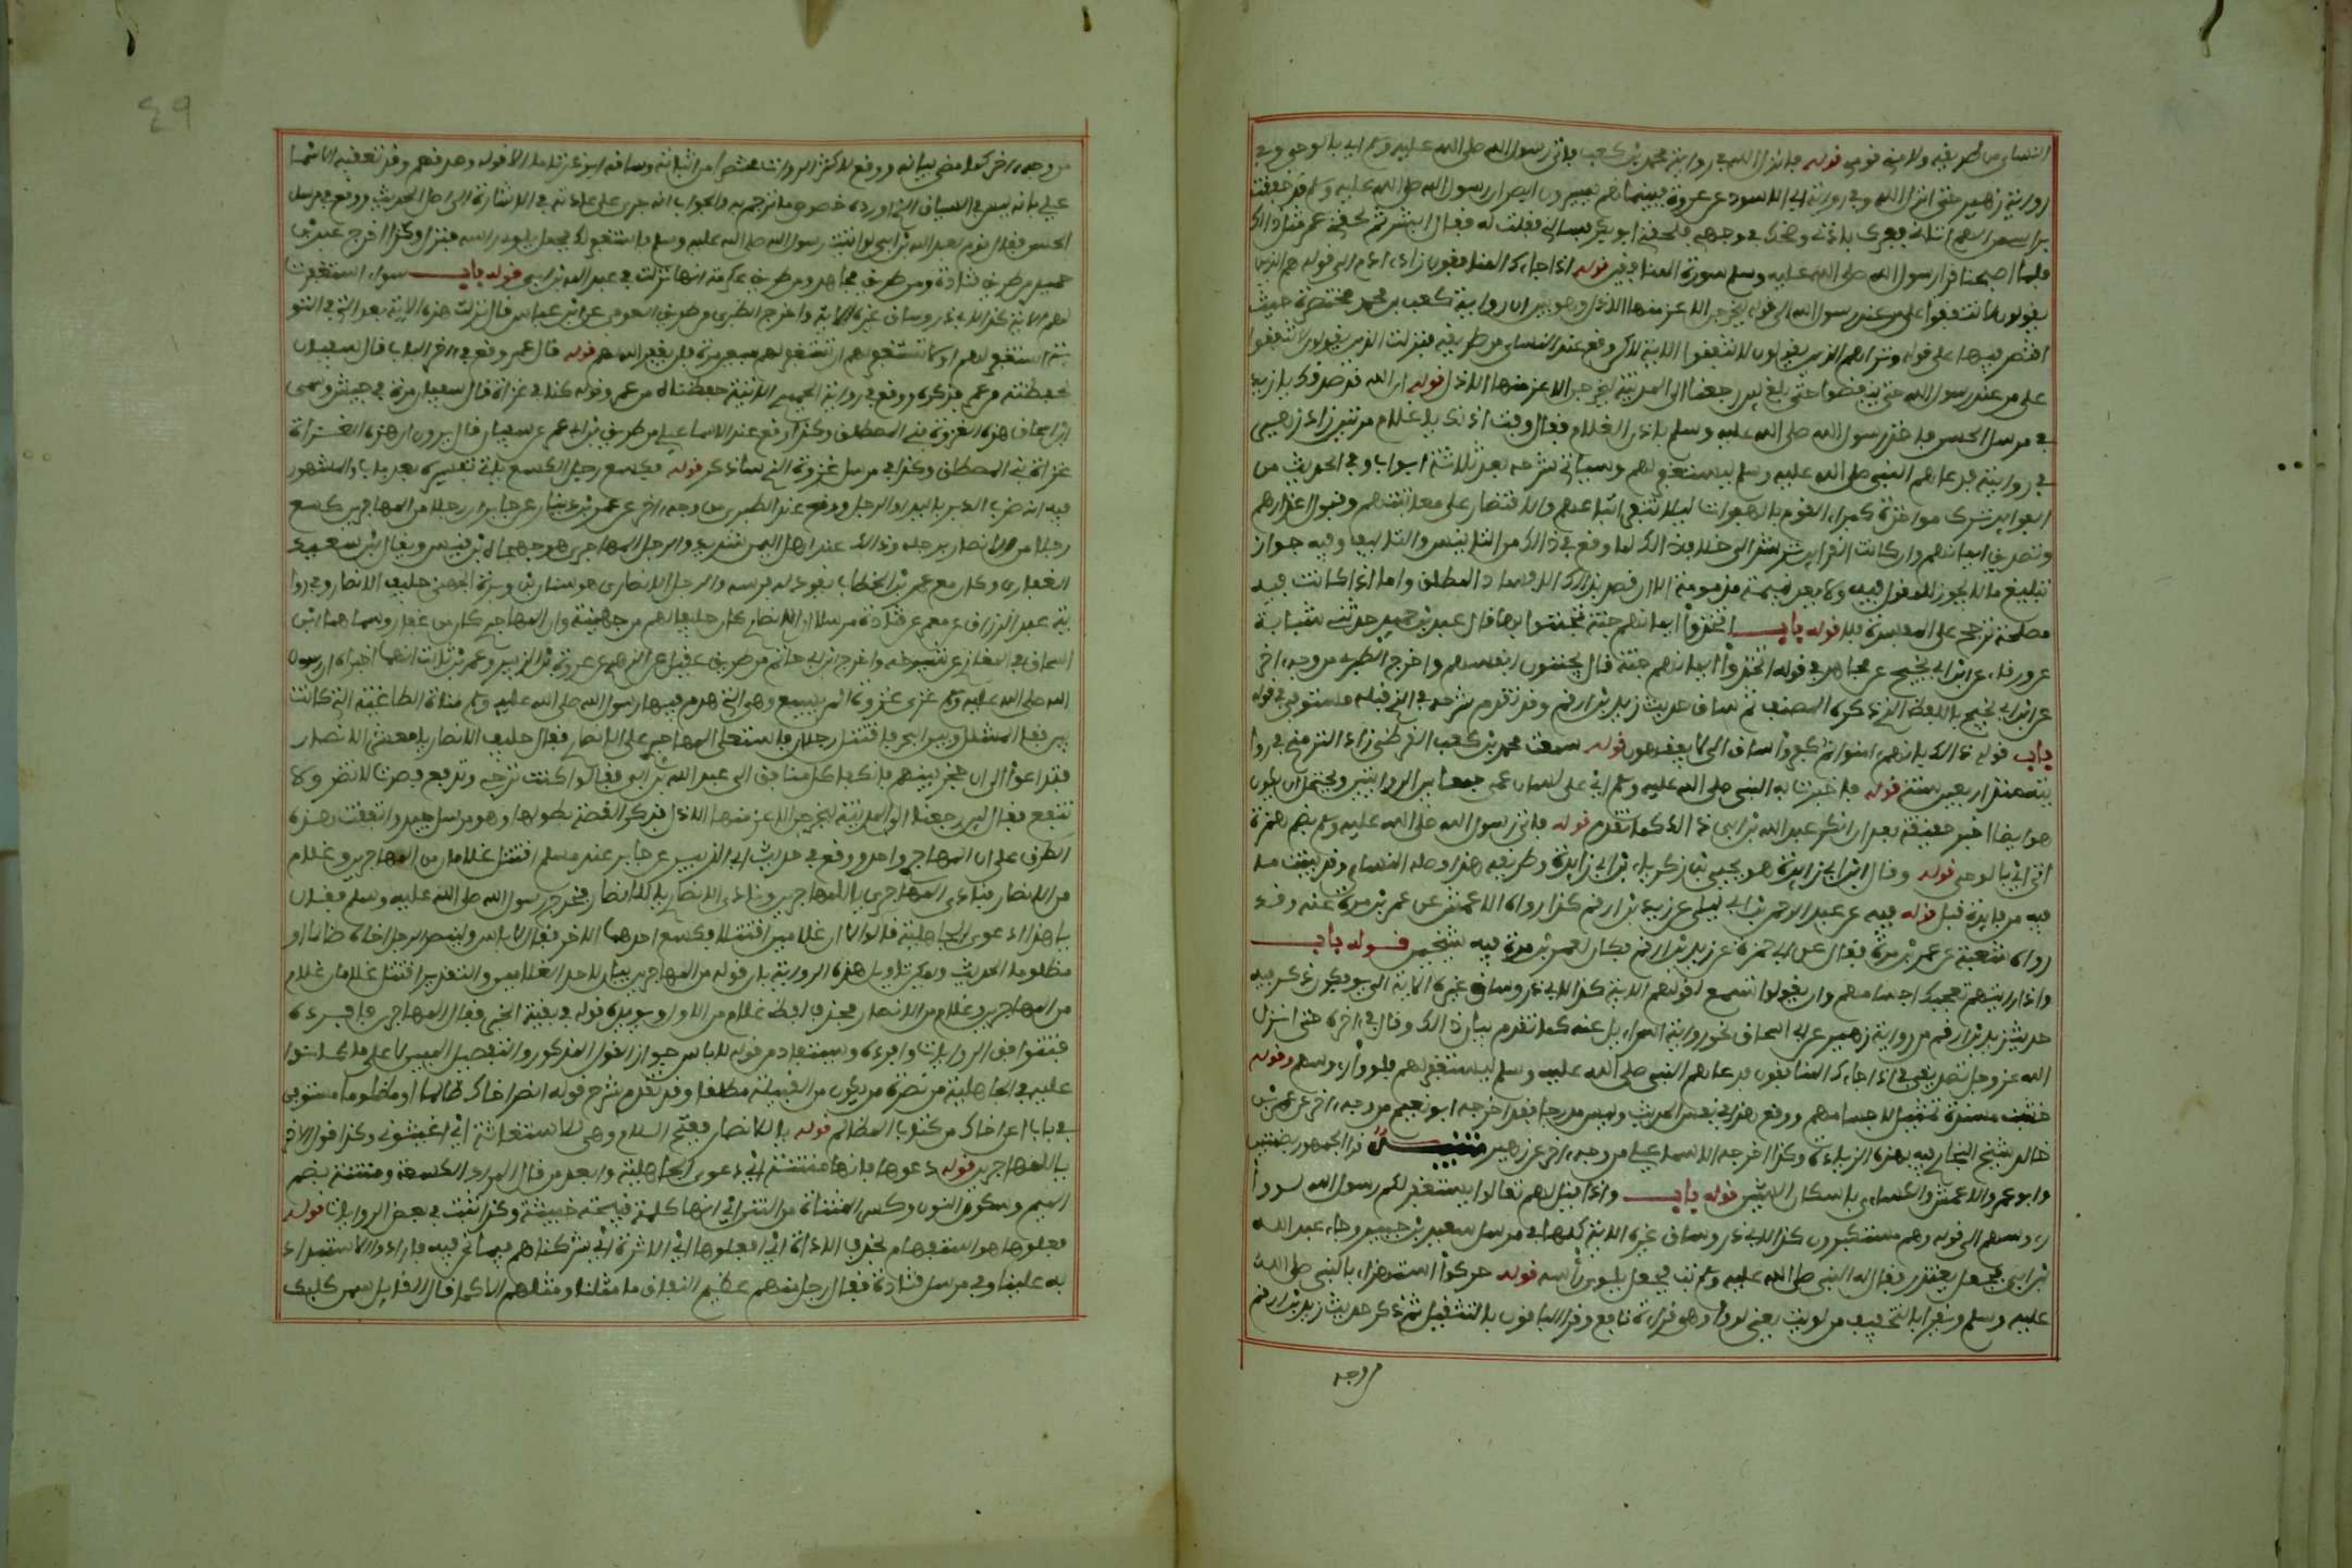 النسائي من طريقه ولامني قومي قوله فانزل الله في رواية محمد بن كعب فاتى رسول الله صلى الله عليه وسلم اي بالوحي وفي
رواية زهير حتى انزل الله وفي رواية ابي الاسود عن عروة فبينما هم يسيرون ابصر رسول الله صلى الله عليه وسلم قد خفقت
براسي من الهم اتاني فعرك باذني وضحك في وجهي فلحقني ابو بكر فسالني فقلت له فقال ابشر ثم لحقني عمر مثل ذلك
فلما اصبحنا قرا رسول الله صلى الله عليه وسلم سورة المنافقين قوله اذا جاءك المنافقون زاد ادم الى قوله هم الذين
يقولون لا تنفقوا على من عند رسول الله الى قوله ليخرجن الاعز منها الاذل وهو يبين ان رواية محمد بن كعب مختصرة حيث
اقتصر فيها على قوله ونزل هم الذين يقولون لا تنفقوا الاية لكن وقع عند النسائي من طريقه فنزلت الذين يقولون لا تنفقوا
على من عند رسول الله حتى ينفضوا حتى بلغ لئن رجعنا الى المدينة ليخرجن الاعز منها الاذل قوله ان الله قد صدقك يا زيد
في مرسل الحسن فاخذ رسول الله صلى الله عليه وسلم باذن الغلام فقال وفت اذنك يا غلام مرتين زاد زهير
في روايته فدعاهم النبي صلى الله عليه وسلم ليستغفر لهم وسياتي شرحه بعد ثلاثة ابواب وفي الحديث من
الفوائد ترك مواخذة كبراء القوم بالهفوات ليلا تنفر اتباعهم والاقتصار على معاتبتهم وقبول اعذارهم
وتصديق ايمانهم وان كانت القراين ترشد الى خلاف ذلك لما وقع في ذلك من التانيس والتاليف وفيه جواز
تبليغ ما لا يجوز للمقول فيه ولا يعد نميمة مذمومة الا ان قصد بذلك الافساد المطلق واما اذا كانت فيه
مصلحة ترجح على المفسدة فلا قوله باب اتخذوا ايمانهم جنة يجتنون بها قال عبد بن حميد حدثني شبابة
عن ورقاء عن ابن ابي نجيح عن مجاهد في قوله اتخذوا ايمانهم جنة قال يجتنون انفسهم واخرج الطبري من وجه اخر
عن ابن ابي نجيح باللفظ الذي ذكره المصنف ثم ساق حديث زيد بن ارقم وقد تقدم شرحه في الذي قبله مستوفى قوله
باب قوله ذلك بانهم امنوا ثم كفروا ساق الى لا يفقهون قوله سمعت محمد بن كعب القرظي زاد الترمذي في روا
يته منذ اربعين سنة قوله فاخبرت به النبي صلى الله عليه وسلم اي على لسان عمي جمعا بين الروايتين ويحتمل ان يكون
هو ايضا اخبر حقيقة بعد ان انكر عبد الله بن ابي ذلك كما تقدم قوله فاتى رسول الله صلى الله عليه وسلم بضم همزة
اتي اي بالوحي قوله وقال ابن ابي زايدة هو يحيى بن زكرياء بن ابي زايدة وطريقه هذا وصله النسائي وقد بينت ما
فيه من فايدة قبل قوله فيه عن عبد الرحمن بن ابي ليلى عن زيد بن ارقم كذا رواه الاعمش عن عمرو بن مرة عنه وقد
رواه شعبة عن عمرو بن مرة فقال عن ابي حمزة عن زيد بن ارقم فكان لعمرو بن مرة فيه شيخين قوله باب
واذا رايتهم تعجبك اجسامهم وان يقولوا تسمع لقولهم الاية كذا لابي ذر وساق غيره الاية الى يوفكون ذكر فيه
حديث زيد بن ارقم من رواية زهير عن ابي اسحاق نحو رواية اسراءيل عنه كما تقدم بيان ذلك وقال في اخره حتى انزل
الله عز وجل تصديقي في اذا جاءك المنافقون فدعاهم النبي صلى الله عليه وسلم ليستغفر لهم فلووا رءوسهم وقوله
خشب مسندة تمثيل لاجسامهم ووقع هذا في نفس الحديث وليس مدرجا فقد اخرجه ابو نعيم من وجه اخر عن عمرو بن
خالد شيخ البخاري فيه بهذه الزيادة وكذا اخرجه الاسماعيلي من وجه اخر عن زهير تنبيه قرا الجمهور بضمتين
وابو عمرو والاعمش والكسائي باسكان الشين قوله باب واذا قيل لهم تعالوا يستغفر لكم رسول الله لووا
رءوسهم الى قوله وهم مستكبرون كذا لابي ذر وساق غيره الاية كلها في مرسل سعيد بن جبير وجاء عبد الله
بن ابي فجعل يعتذر فقال له النبي صلى الله عليه وسلم تب فجعل يلوي راسه قوله حركوا استهزءا بالنبي صلى الله
عليه وسلم ويقرا بالتخفيف من لويت يعني لووا وهي قراءة نافع وقرا الباقون بالتثقيل ثم ذكر حديث زيد بن ارقم
من وجه
٤٩
من وجه اخر كما مضى بيانه ووقع لاكثر الرواة مختصرا من اثنايه وساقه ابو ذر تاما الا قوله وصدقهم وقد تعقبه الاسما
عيلي بانه ليس في السياق الذي اورده خصوص ما ترجم به والجواب انه جرى على عادته في الاشارة الى اصل الحديث ووقع في مرسل
الحسن فقال قوم لعبد الله بن ابي لو اتيت رسول الله صلى الله عليه وسلم فاستغفر لك فجعل يلوي راسه فنزلت وكذا اخرج عبد بن
حميد من طريق قتادة ومن طريق مجاهد ومن طريق عكرمة انها نزلت في عبد الله بن ابي قوله باب سواء استغفرت
لهم الاية كذا لابي ذر وساق غيره الاية واخرج الطبري من طريق العوفي عن ابن عباس قال نزلت هذه الاية بعد التي في التو
بة استغفر لهم او لا تستغفر لهم ان تستغفر لهم سبعين مرة فلن يغفر الله لهم قوله قال عمرو وقع في اخر الباب قال سفيان
فحفظته من عمرو فذكره ووقع في رواية الحميدي الاتية حفظناه من عمرو قوله كنا في غزاة قال سفيان مرة في جيش وسمى
ابن اسحاق هذه الغزوة بني المصطلق وكذا وقع عند الاسماعيلي من طريق ابن ابي عمر عن سفيان قال يرون ان هذه الغزاة
غزاة بني المصطلق وكذا في مرسل عروة الذي ساذكره قوله فكسع رجل الكسع ياتي تفسيره بعد باب والمشهور
فيه انه ضرب الدبر باليد او الرجل ووقع عند الطبري من وجه اخر عن عمرو بن دينار عن جابر ان رجلا من المهاجرين كسع
رجلا من الانصار برجله وذلك عند اهل اليمن شديد والرجل المهاجري هو جهجاه بن قيس ويقال بن سعيد
الغفاري وكان مع عمر بن الخطاب يقود له فرسه والرجل الانصاري هو سنان بن وبرة الجهني حليف الانصار وفي روا
ية عبد الرزاق عن معمر عن قتادة مرسلا ان الانصاري كان حليفا لهم من جهينة وان المهاجري كان من غفار وسماهما ابن
اسحاق في المغازي عن شيوخه واخرج ابن ابي حاتم من طريق عقيل عن الزهري عن عروة بن الزبير وعمرو بن ثابت انهما اخبراه ان رسول
الله صلى الله عليه وسلم غزى غزوة المريسيع وهي التي هدم فيها رسول الله صلى الله عليه وسلم مناة الطاغية التي كانت
بين قفا المشلل وبين البحر فاقتتل رجلان فاستعلى المهاجري على الانصاري فقال حليف الانصار يا معشر الانصار
فتداعوا الى ان حجز بينهم فانكفا كل منافق الى عبد الله بن ابي فقالوا كنت ترجى وتدفع فصرت لا تضر ولا
تنفع فقال لئن رجعنا الى المدينة ليخرجن الاعز منها الاذل فذكر القصة بطولها وهو مرسل جيد واتفقت هذه
الطرق على ان المهاجري واحد ووقع في حديث ابي الزبير عن جابر عند مسلم اقتتل غلامان من المهاجرين وغلام
من الانصار فنادى المهاجري يا للمهاجرين ونادى الانصاري يا للانصار فخرج رسول الله صلى الله عليه وسلم فقال
ما هذا دعوى الجاهلية قالوا لا ان غلامين اقتتلا فكسع احدهما الاخر فقال لا باس ولينصر الرجل اخاه ظالما او
مظلوما الحديث ويمكن تاويل هذه الرواية بان قوله من المهاجرين بيان لاحد الغلامين والتقدير اقتتل غلامان غلام
من المهاجرين وغلام من الانصار فحذف لفظة غلام من الاول ويويده قوله في بقية الخبر فقال المهاجري فافرده
فتتوافق الروايات وافرده ويستفاد من قوله لا باس جواز القول المذكور والتفصيل المبين لا على ما كانوا
عليه في الجاهلية من نصرة من يكون من القبيلة مطلقا وقد تقدم شرح قوله انصر اخاك ظالما او مظلوما مستوفى
في باب اعن اخاك من كتاب المظالم قوله يا للانصار بفتح اللام وهي للاستغاثة اي اغيثوني وكذا قول الاخر
يا للمهاجرين قوله دعوها فانها منتنة اي دعوى الجاهلية وابعد من قال المراد الكسعة ومنتنة بضم
الميم وسكون النون وكسر المثناة من النتن اي انها كلمة قبيحة خبيثة وكذا ثبتت في بعض الروايات قوله
فعلوها هو استفهام بحذف الاداة اي افعلوها اي الاثرة اي شركناهم فيما نحن فيه فارادوا الاستبداد
به علينا وفي مرسل قتادة فقال رجل منهم عظيم النفاق ما مثلنا ومثلهم الا كما قال القايل سمن كلبك